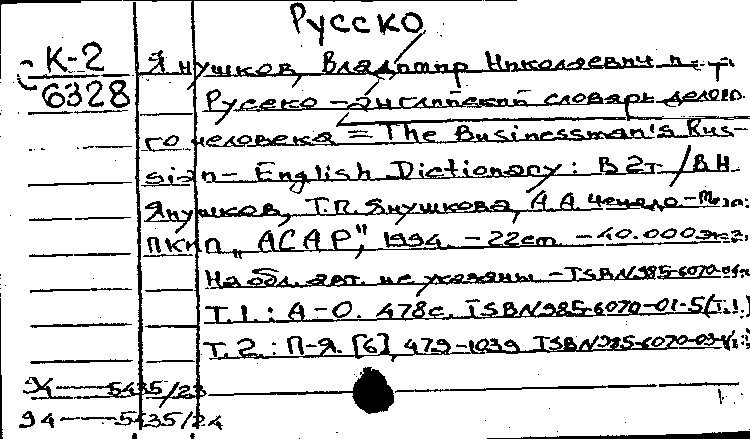 Русско
К-2
6328
Янушков, Владимир Николаевич и др.
Русско-английский словарь делово
го человека = The Businessman's Rus-
sian-English Dictionary: В 2т / В Н
Янушков, Т.П. Янушкова, А.А.
ПКИП „АСАР", 1994. - 22cm - 40.000экз.
На обл. авт. не указаны - ISBN 985-6070-
Т.1.: А-О. 478с. ISBN 985-6070-01-5 (т.1.)
Т.2.: П-Я. [6], 479-1039 ISBN 985-6070-
94 — 5435/23
94 — 5435/24